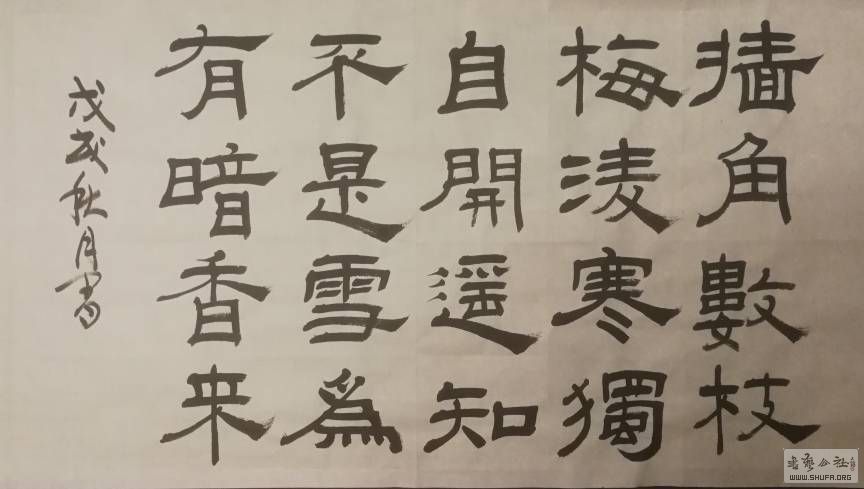 墙角數枝
梅淩寒獨
自開遥知
不是雪為
有暗香来
戊戌秋月書
書藝公社
WWW.SHUFA.ORG